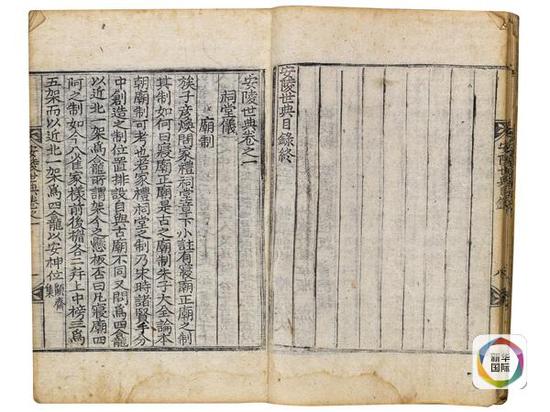 安陵世典目錄
八
安陵世典目錄終
安陵世典卷之一
祠堂儀
廟制
族子彦煥問家禮祠堂章下小註有寢廟正廟之制
其制如何曰寢廟正廟是古之廟制朱子大全論本
朝廟制可考也若家禮祠堂之制乃宋時諸賢千分
中創造之制位置排設自與古廟不同又問爲四龕
以近北一架爲龕所謂架今之懸板否曰凡寢廟四
阿之制如今人家樣前後各二幷上中榜三爲
五架而以近北一架爲四龕以安神位顧齋集
安陵世典卷之一
新华国际